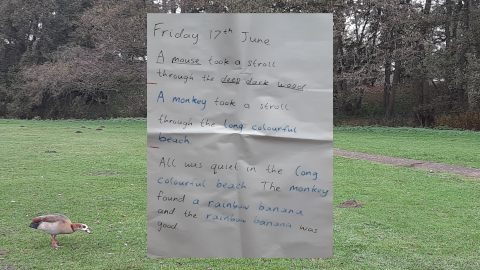 Friday 17th June
A mouse took a stroll
through the deep dark wood
A monkey took a stroll
through the long colourful
beach.
All was quiet in the long
colourful beach The monkey
found a rainbow banana
and the rainbow banana was
good.